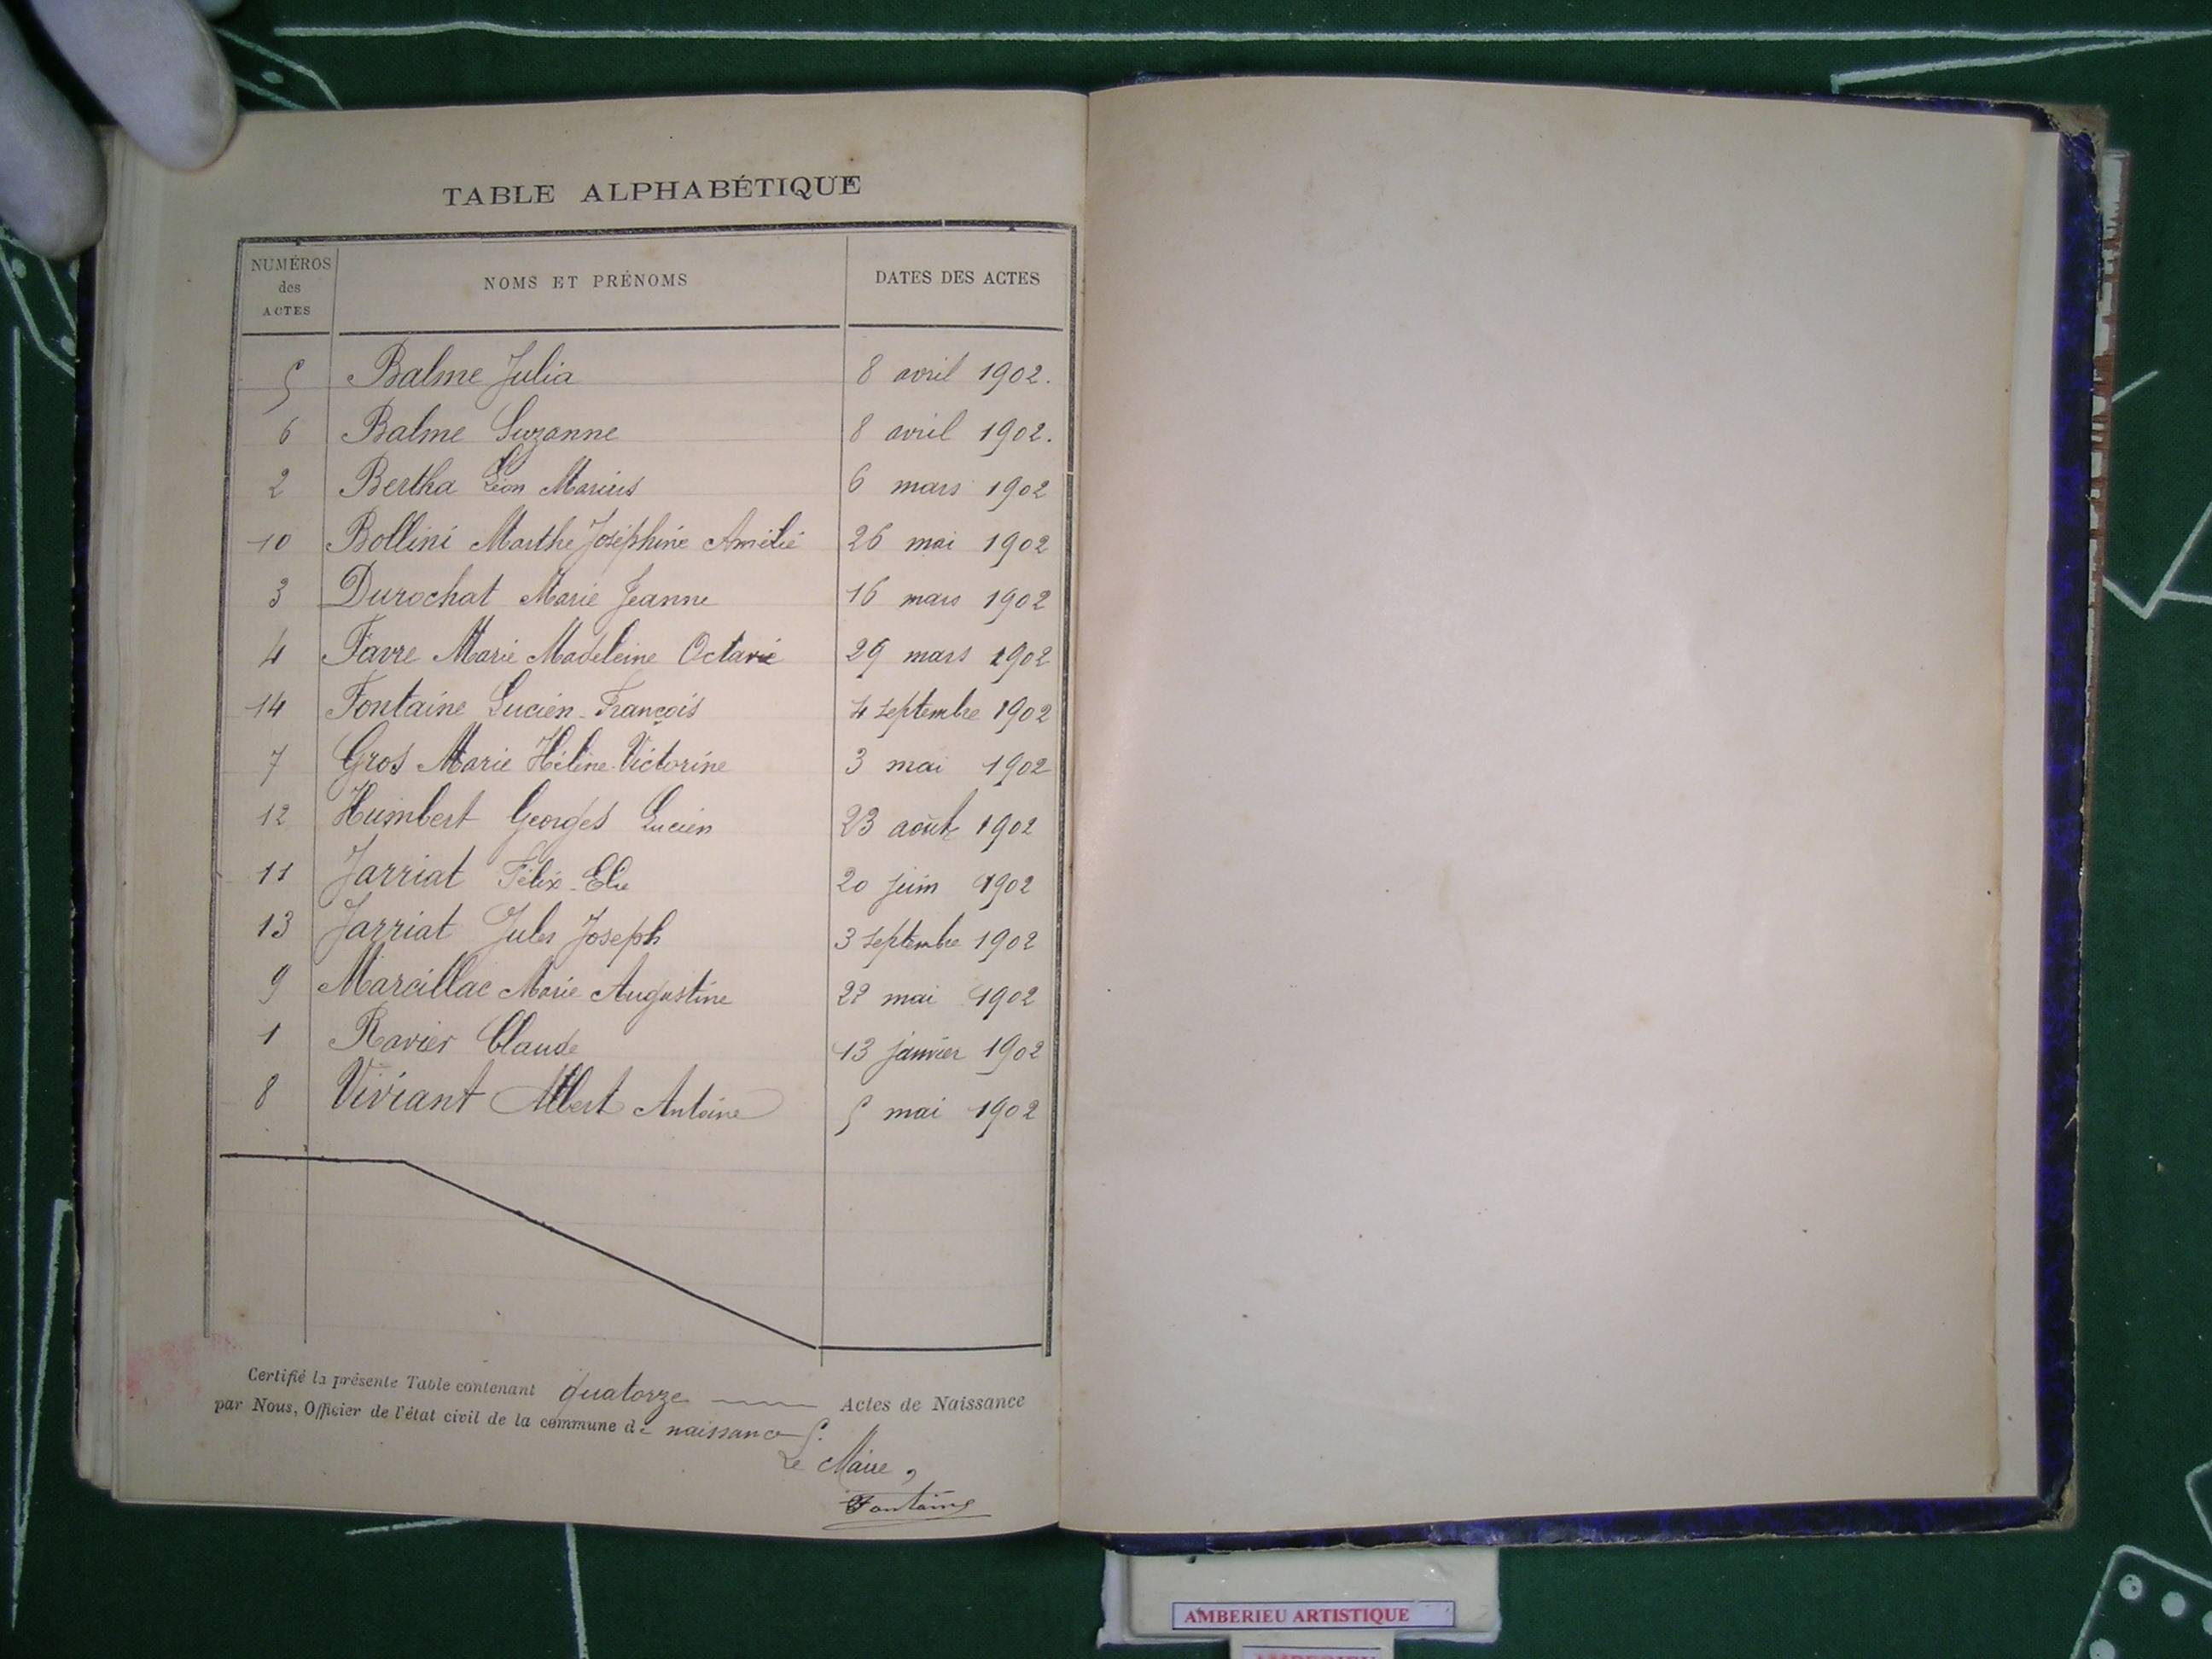 TABLE ALPHABÉTIQUE
NUMÉROS des ACTES NOMS ET PRÉNOMS DATES DES ACTES
5 Balme Julia 8 avril 1902.
6 Balme Suzanne 8 avril 1902.
2 Bertha Léon Marius 6 mars 1902
10 Bollini Marthe Joséphine Amélie 26 mai 1902
3 Durochat Marie Jeanne 16 mars 1902
4 Favre Marie Madeleine Octavie 29 mars 1902
14 Fontaine Lucien-François 4 septembre 1902
7 Gros Marie Hélène-Victorine 3 mai 1902
12 Humbert Georges Lucien 23 août 1902
11 Jarriat Félix-Elie 20 juin 1902
13 Jarriat Jules Joseph 3 septembre 1902
9 Marcillac Marie Augustine 22 mai 1902
1 Ravier Claude 13 janvier 1902
8 Viviant Albert Antoine 5 mai 1902
Certifié la présente Table contenant quatorze Actes de Naissance
par Nous, Officier de l'état civil de la commune de naissances.
Le Maire,
Fontaine
AMBERIEU ARTISTIQUE